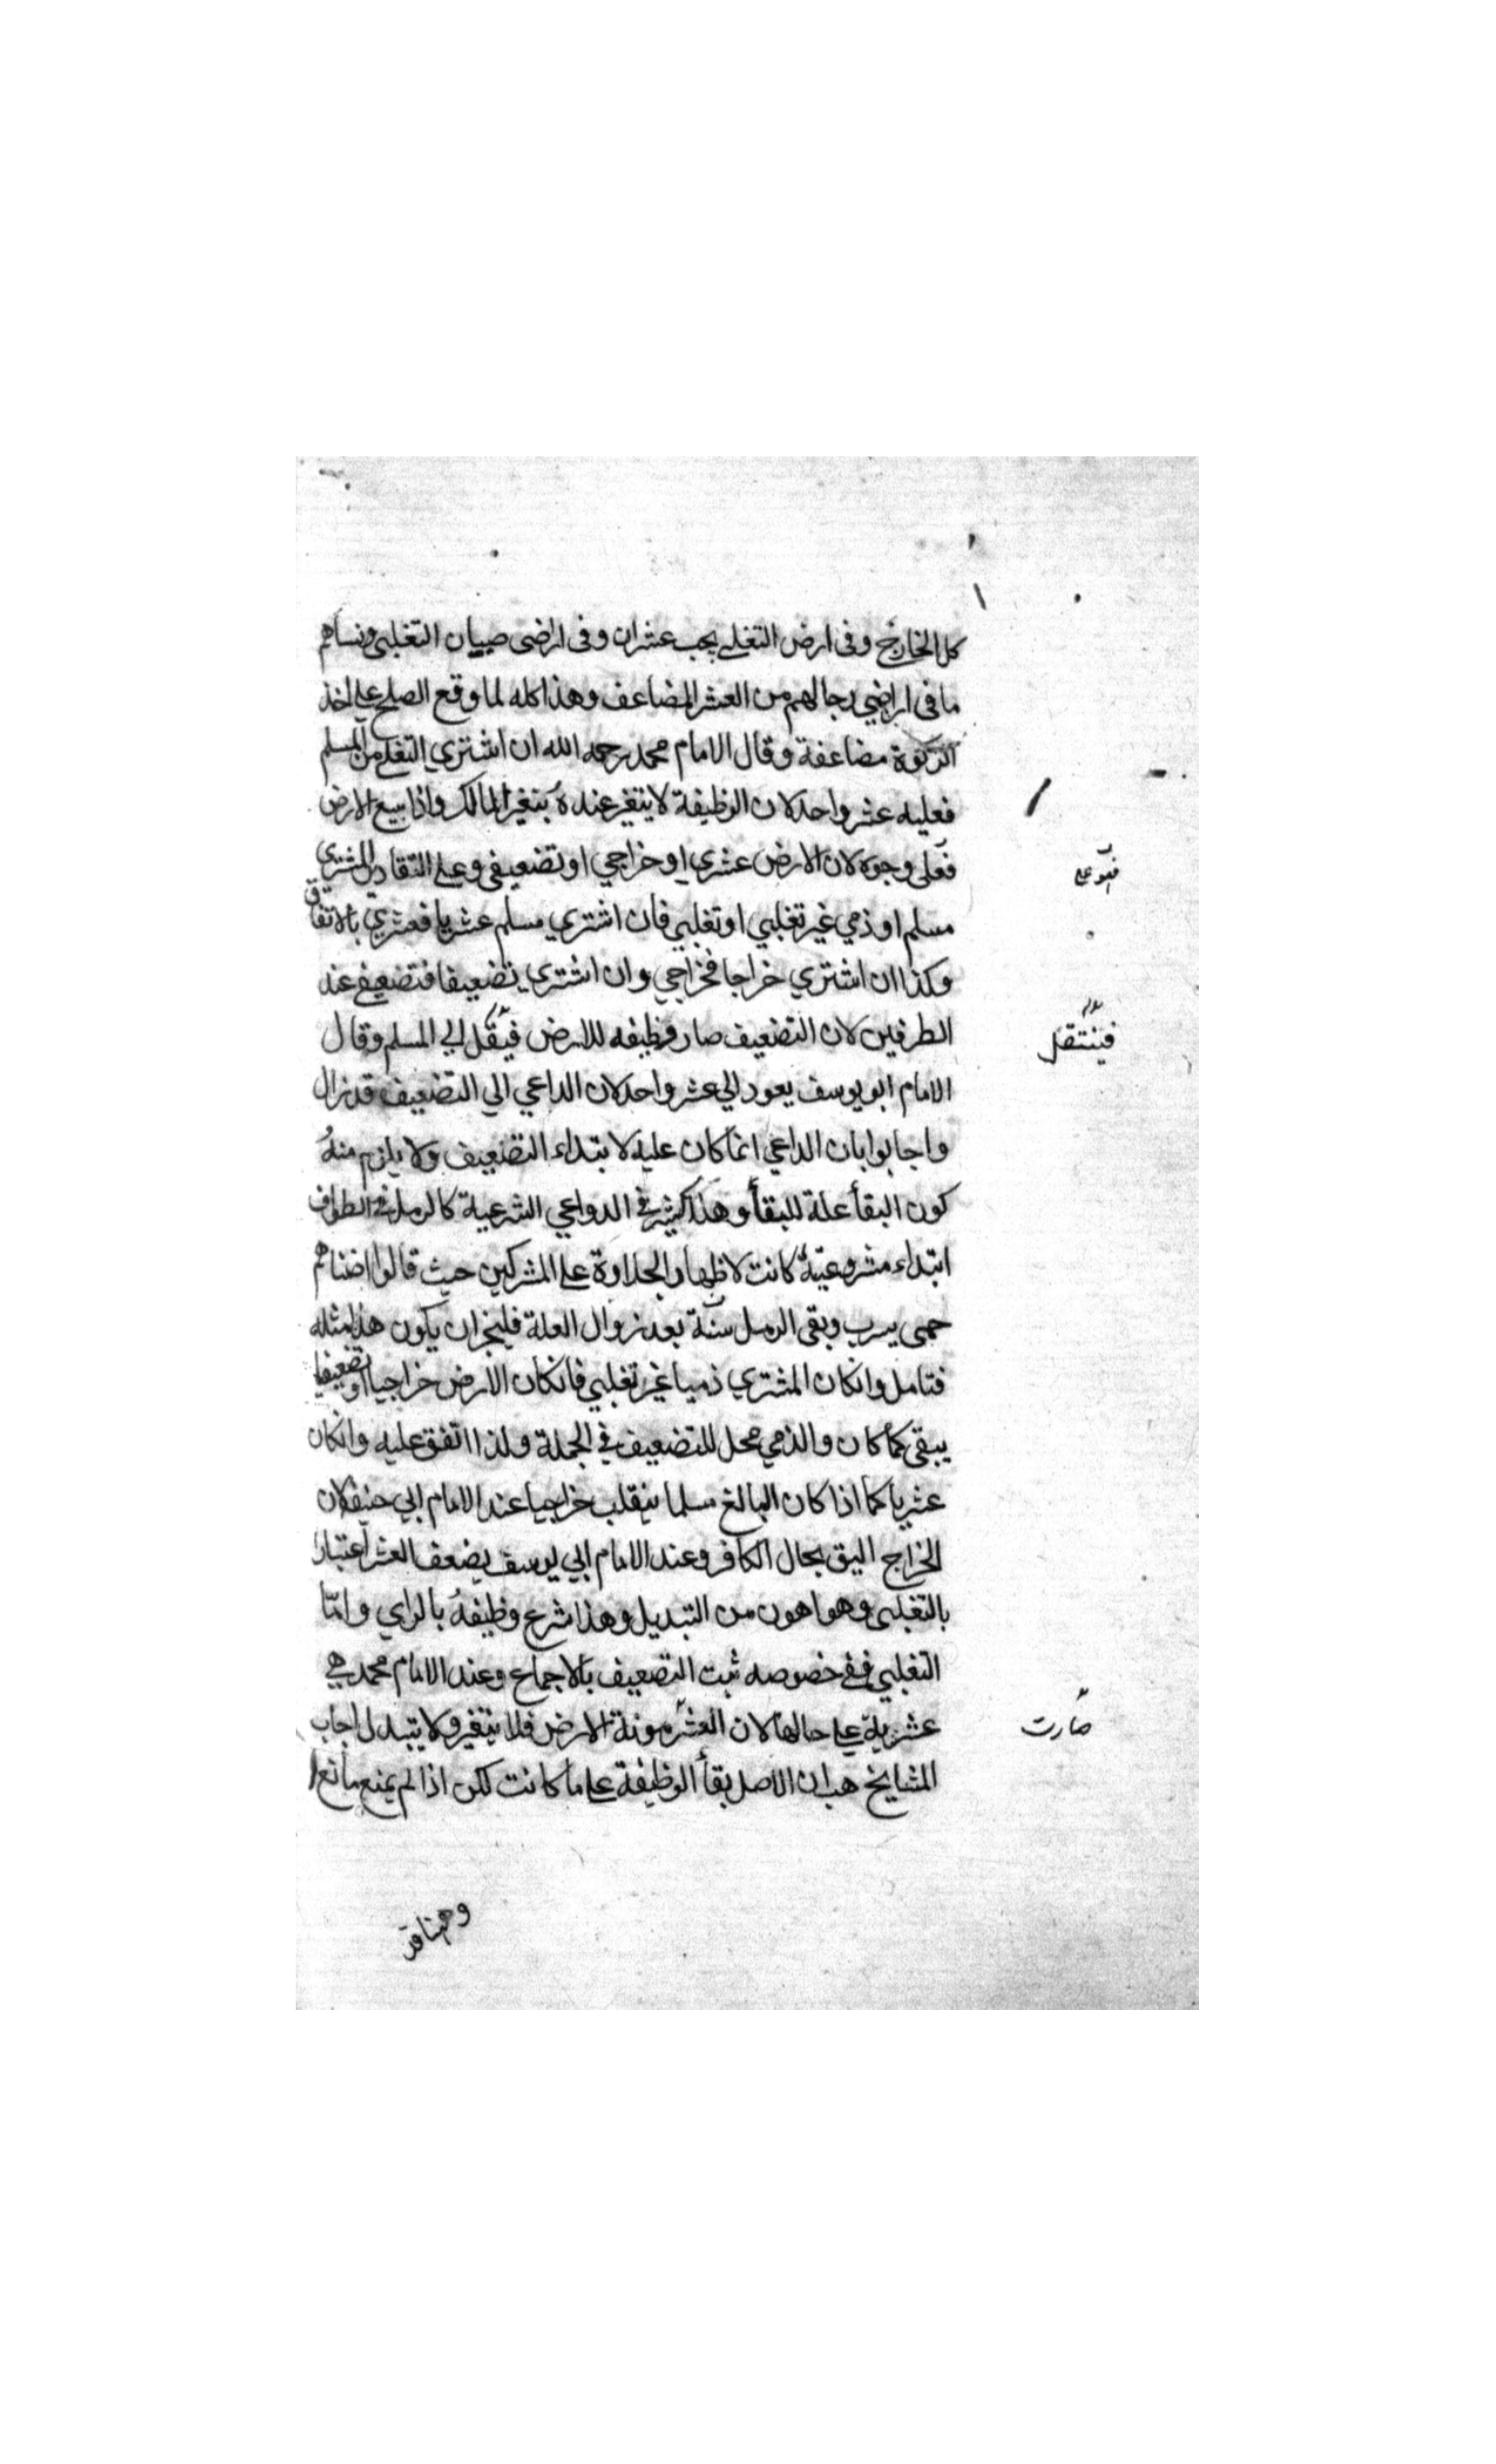 كل الخارج وفى ارض التغلبي يجب عشران وفى اراضى صبيان التغلبى ونساهم
ما فى اراضي رجالهم من العشر المضاعف وهذا كله لما وقع الصلح على اخذ
الزكوة مضاعفة وقال الامام محمد رحمه الله ان اشتري التغلبي من المسلم
فعليه عشر واحد لان الوظيفة لا يتغير عنده بتغير المالك واذا بيع الارض
فعلى وجوه لان الارض عشري او خراجي او تضعيفى وعلى التقادير المشتري
فهو على
مسلم او ذمي غير تغلبي او تغلبي فان اشتري مسلم عشريا فعشري بالاتفاق
وكذا ان اشتري خراجا فخراجي وان اشتري تضعيفا فتضعيفي عند
الطرفين لان التضعيف صار وظيفه للارض فينقل الي المسلم وقال
فينتقل
الامام ابو يوسف يعود الي عشر واحد لان الداعي الي التضعيف قد زال
واجابوا بان الداعي انما كان علية لابتداء التضعيف ولا يلزم منه
كون البقأ علة للبقأ وهذا كثير في الدواعي الشرعية كالرمل في الطواف
ابتداء مشروعيته كانت لاظهار الجلادة على المشركين حيث قالوا اضناهم
حمى يثرب وبقى الرمل سنة بعد زوال العلة فليجز ان يكون هذا مثله
فتامل وانكان المشتري ذميا غير تغلبي فانكان الارض خراجيا او تضعيفيا
يبقى كما كان والذمي محل للتضعيف في الجملة ولذا اتفق عليه وانكان
عشريا كما اذا كان البالغ مسلما ينقلب خراجيا عند الامام ابي حنيفة لان
الخراج اليق بحال الكافر وعند الامام ابي يوسف يضعف العشر اعتبارا
بالتغلبى وهو اهون من التبديل وهذا شرع وظيفة بالراي وامّا
التغلبي ففى خصوصه ثبت التضعيف بالاجماع وعند الامام محمد هي
عشرية على حالها لان العشر مونة الارض فلا يتغير ولا يتبدل اجاب
صارت
المشايخ هب ان الاصل بقأ الوظيفة على ما كانت لكن اذا لم يمنع مانع
وههنا قد